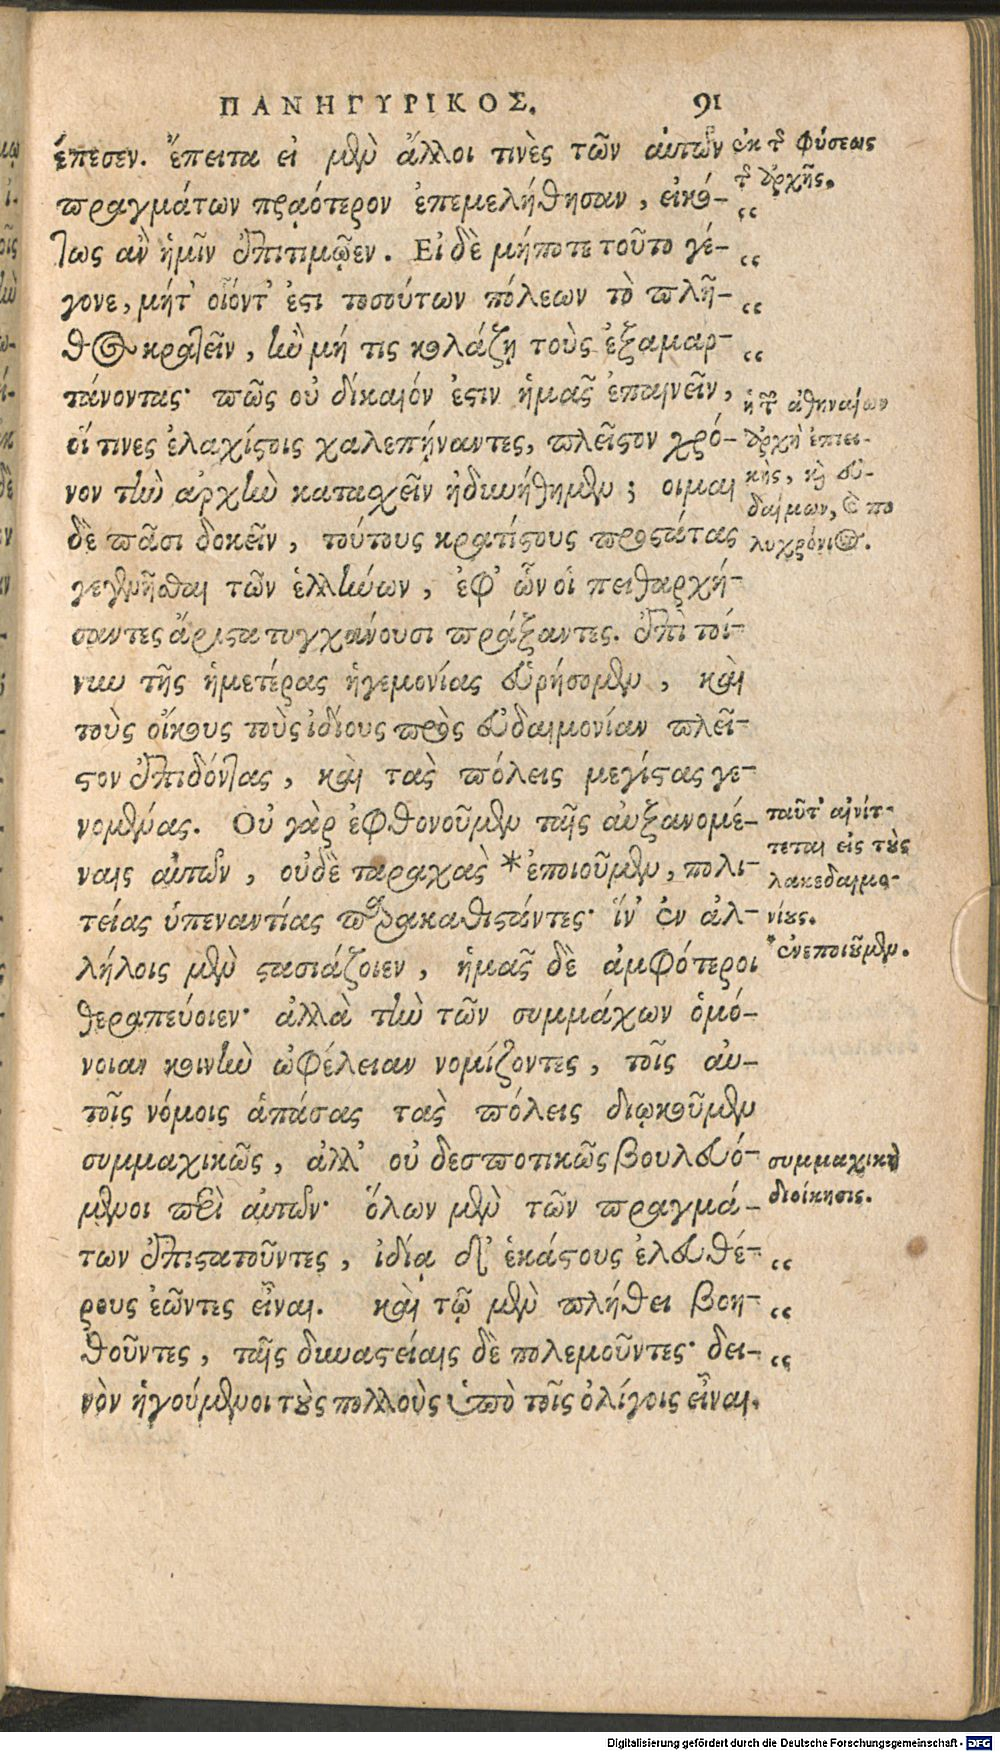 ΠΑΝΗΓΥΡΙΚΟΣ. 91
ἔπεσεν. ἔπειτα εἰ μὲν ἄλλοι τινὲς τῶν αὐτῶν
πραγμάτων πρᾳότερον ἐπεμελήθησαν, εἰκό-
τως ἂν ἡμῖν ἐπιτιμῷεν. Εἰ δὲ μήποτε τοῦτο γέ-
γονε, μήτ' οἷόντ' ἐστι τοσούτων πόλεων τὸ πλῆ-
θος κρατεῖν, ἢν μή τις κολάζῃ τοὺς ἐξαμαρ-
τάνοντας· πῶς οὐ δίκαιόν ἐστιν ἡμᾶς ἐπαινεῖν,
οἵ τινες ἐλαχίστοις χαλεπήναντες, πλεῖστον χρό-
νον τὴν ἀρχὴν κατασχεῖν ἠδυνήθημεν; οιμαι
δὲ πᾶσι δοκεῖν, τούτους κρατίστους προστάτας
γεγενῆσθαι τῶν ἑλλήνων, ἐφ' ὧν οἱ πειθαρχή-
σαντες ἄριστα τυγχάνουσι πράξαντες. ἐπὶ τοί-
νυν τῆς ἡμετέρας ἡγεμονίας εὑρήσομεν, καὶ
τοὺς οἴκους τοὺς ἰδίους πρὸς εὐδαιμονίαν πλεῖ-
στον ἐπιδόντας, καὶ τὰς πόλεις μεγίστας γε-
νομένας. Οὐ γὰρ ἐφθονοῦμεν ταῖς αὐξανομέ-
ναις αὐτῶν, οὐδὲ ταραχὰς *ἐποιοῦμεν, πολι-
τείας ὑπεναντίας παρακαθιστάντες· ἵν' ἐν ἀλ-
λήλοις μὲν στασιάζοιεν, ἡμᾶς δὲ ἀμφότεροι
θεραπεύοιεν· ἀλλὰ τὴν τῶν συμμάχων ὁμό-
νοιαν κοινὴν ὠφέλειαν νομίζοντες, τοῖς αὐ-
τοῖς νόμοις ἁπάσας τὰς πόλεις διῳκοῦμεν
συμμαχικῶς, ἀλλ' οὐ δεσποτικῶς βουλευό-
μενοι περὶ αὐτῶν· ὅλων μὲν τῶν πραγμά-
των ἐπιστατοῦντες, ἰδίᾳ δ' ἑκάστους ἐλευθέ-
ρους ἐῶντες εἶναι. καὶ τῷ μὲν πλήθει βοη-
θοῦντες, ταῖς δυναστείαις δὲ πολεμοῦντες· δει-
νὸν ἡγούμενοι τοὺς πολλοὺς ὑπὸ τοῖς ὀλίγοις εἶναι.
ἐκ τῆς φύσεως
τῆς ἀρχῆς.
ἡ τῶν ἀθηναίων
ἀρχὴ ἐπιει-
κὴς, καὶ εὐ-
δαίμων, καὶ πο
λυχρόνιος.
ταῦτ' αἰνίτ-
τεται εἰς τοὺς
λακεδαιμο-
νίους.
*ἐνεποιοῦμεν.
συμμαχικὴ
διοίκησις.
Digitalisierung gefördert durch die Deutsche Forschungsgemeinschaft - DFG